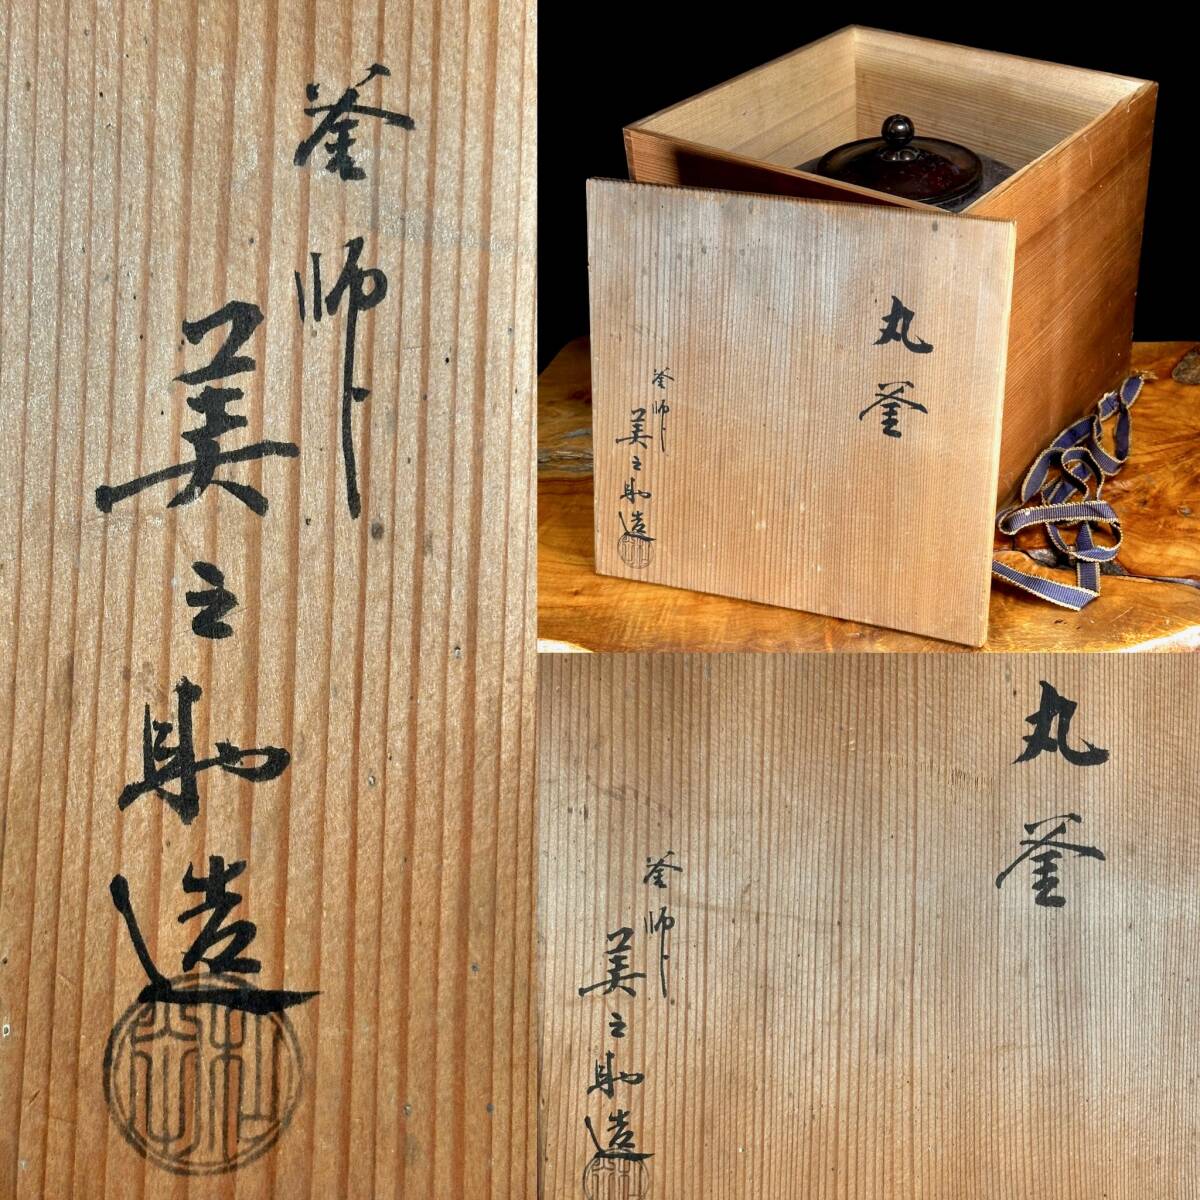 釜師
美之助造
丸釜
釜師
美之助造
丸釜
釜師
美之助造